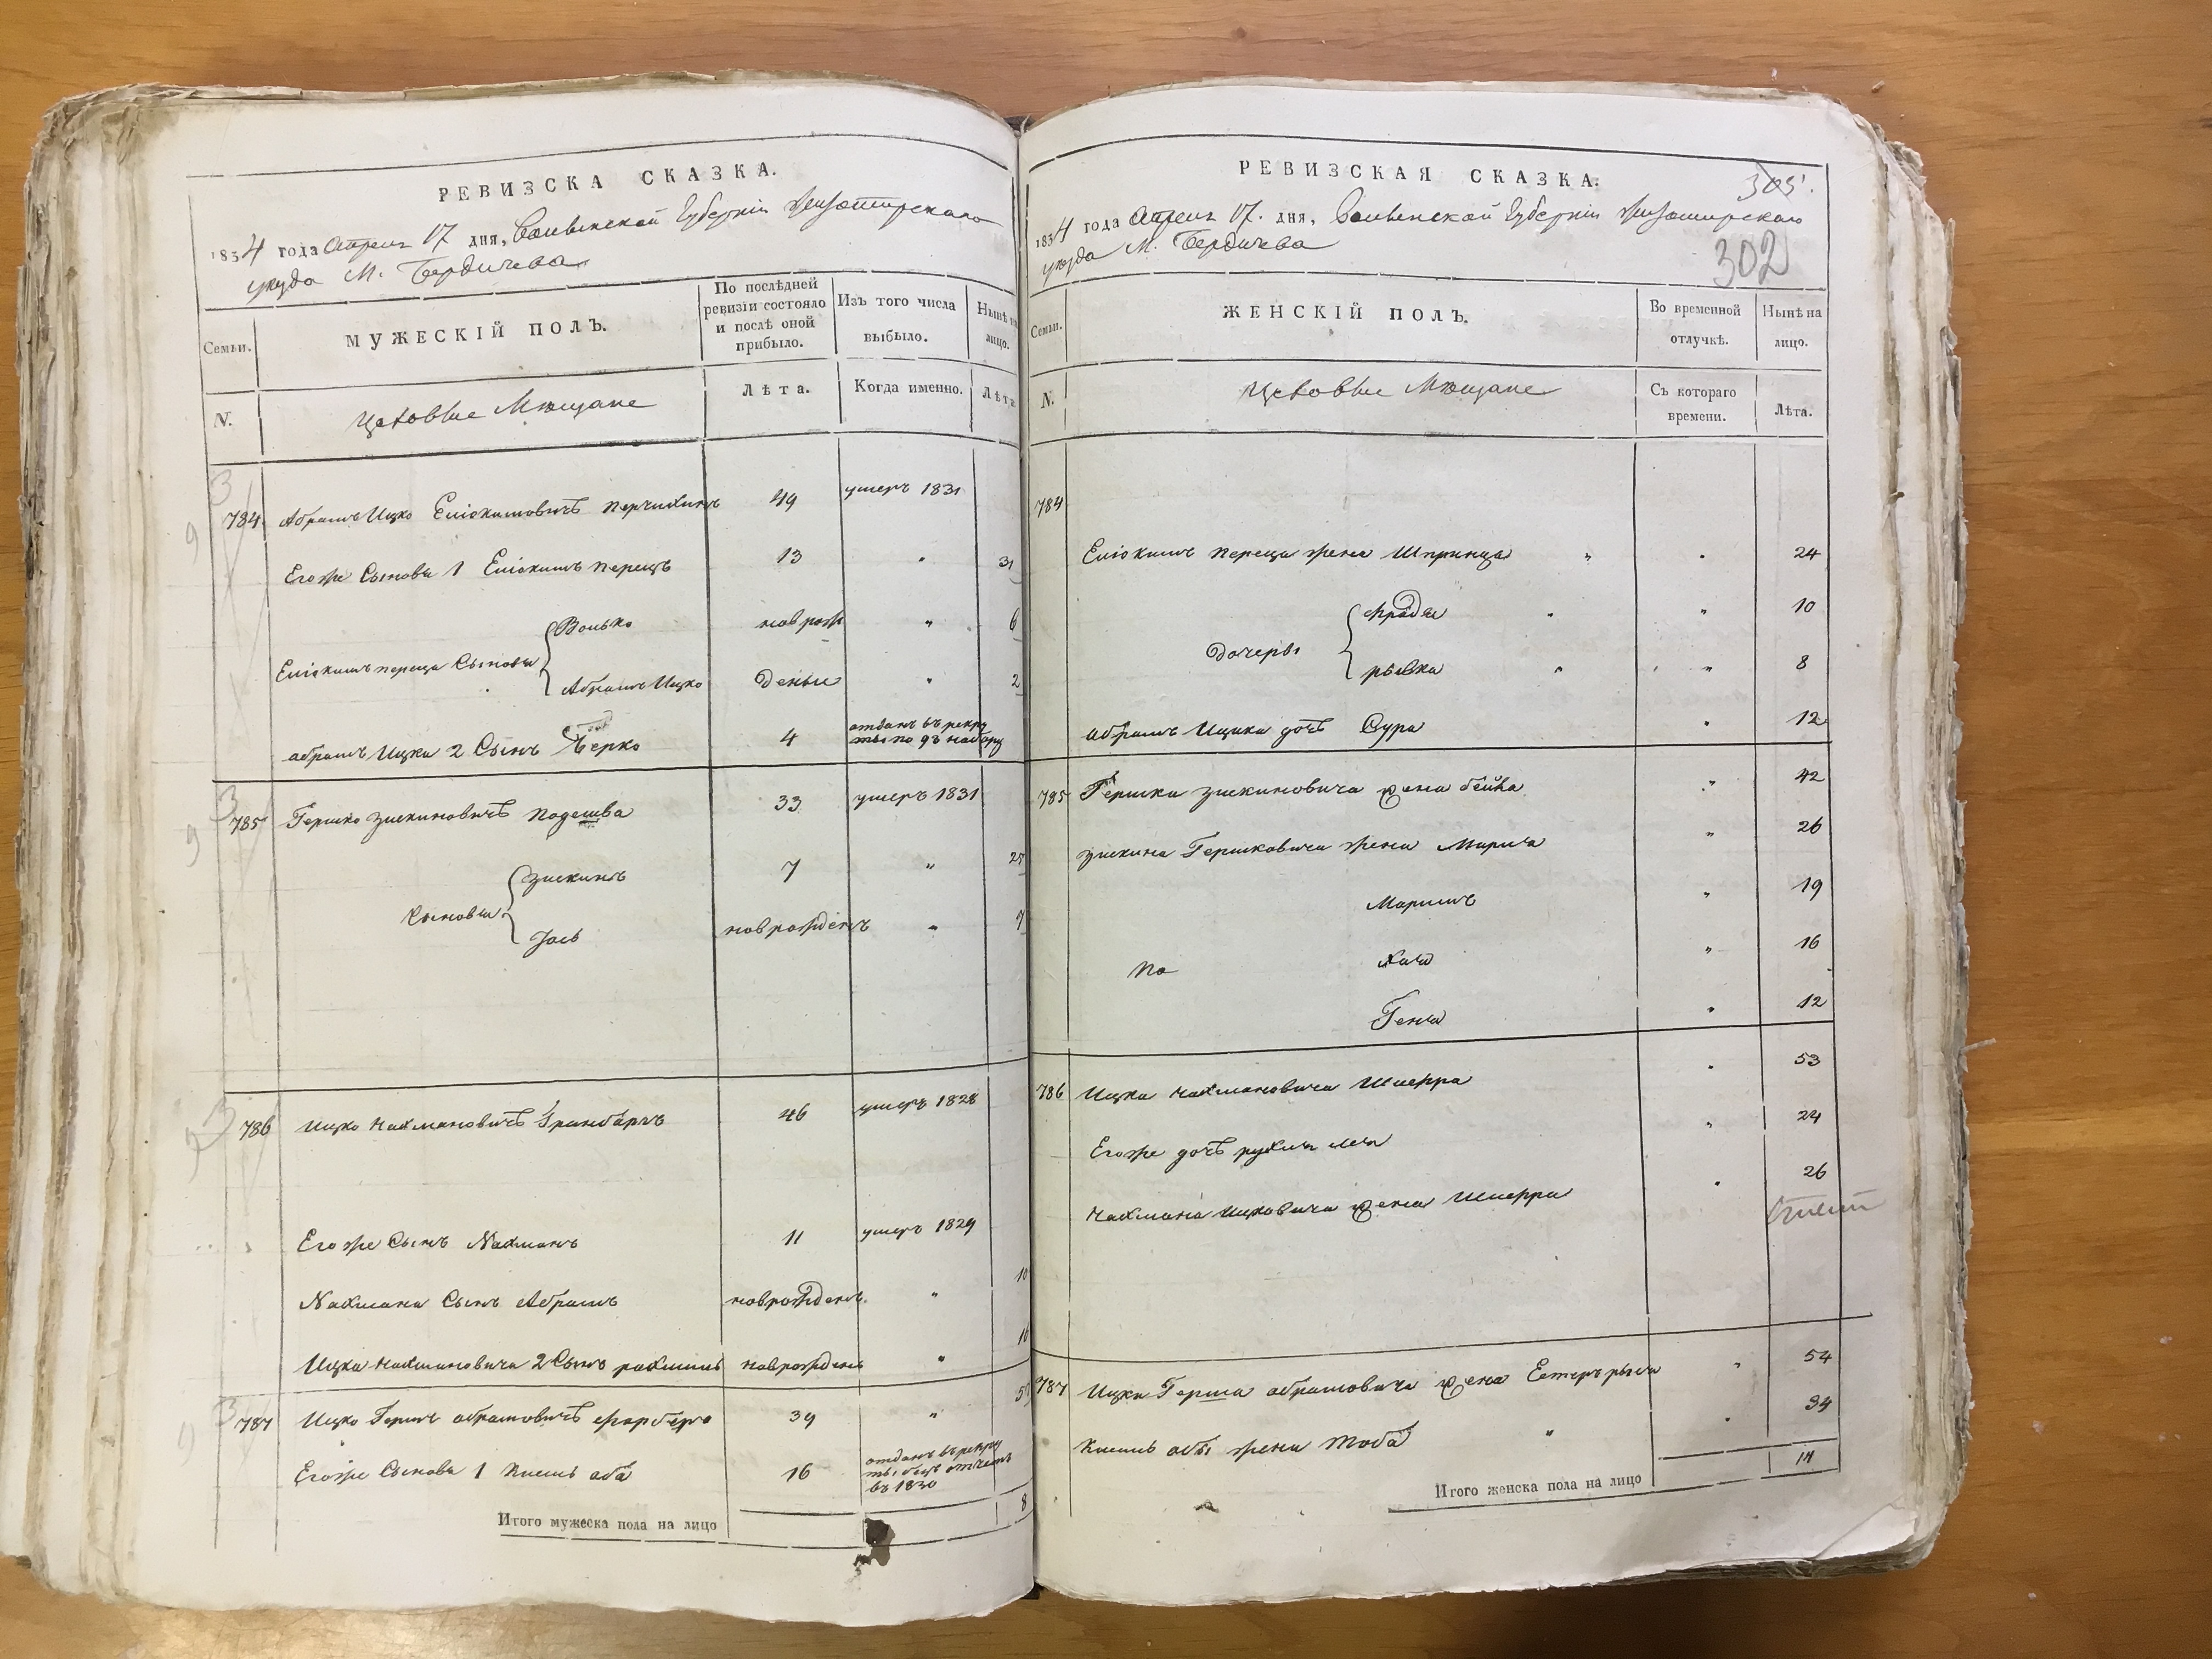 РЕВИЗСКА СКАЗКА.
1834 года Апреля 17 дня, Волынской Губернии Житомирскаго
уезда М. Бердичева
Семьи.
МУЖЕСКІЙ ПОЛЪ.
По послѣдней ревизіи состояло и послѣ оной прибыло.
Изъ того числа выбыло.
Нынѣ на лицо.
N.
Цеховые Мещане
Лѣта.
Когда именно.
Лѣта
784 Абрамъ Ицко Еліокимовичъ 49 умеръ 1831
Егоже Сыновья 1 Еліокимъ перецъ 13 " 31
Волько новрожд " 6
Еліокимъ переца Сыновья
Абрамъ Ицко деньи " 2
абрамъ Ицка 2 Сынъ Берко 4 отданъ въ рекру
ты по 92 набору
785 Гершко зискиновичъ подешва 33 умеръ 1831
зискинъ 7 " 25
Сыновья
Іось новрожденъ " 7
786 Ицко нахмановичъ 46 умеръ 1828
Егоже Сынъ Нахманъ 11 умеръ 1829
Нахмана Сынъ Абрамъ новрожденъ " 10
Ицка нахмановича 2 Сынъ рахмиль новрожденъ " 16
787 Ицко Гершъ абрамовичъ фарберъ 39 "
Егоже Сыновья 1 аба 16 отданъ въ рекру
ты
въ 1830
Итого мужеска пола на лицо 8
РЕВИЗСКАЯ СКАЗКА.
305.
1834 года Апреля 17. дня, Волынской Губернии Житомирскаго
уезда М. Бердичева
302
Семьи.
ЖЕНСКІЙ ПОЛЪ.
Во временной отлучкѣ.
Нынѣ на лицо.
N.
Цеховые Мещане
Съ котораго времени.
Лѣта.
784
Еліокимъ переца жена Шпринца " " 24
фрадя " " 10
дочери
рывка " " 8
абрамъ Ицика дочь Сура " 12
785 Гершка зискиновича жена бейла " 42
зискина Гершковича жена Мирля " 26
Маримъ " 19
Хая " 16
Геня " 12
786 Ицка нахмановича Шифра " 53
Егоже дочь рухля лея " 24
нахмана Ицковича жена Шифра " 26
787 Ицка Герша абрамовича жена Естеръ рыся " 54
абы жена Тоба " " 34
Итого женска пола на лицо 14